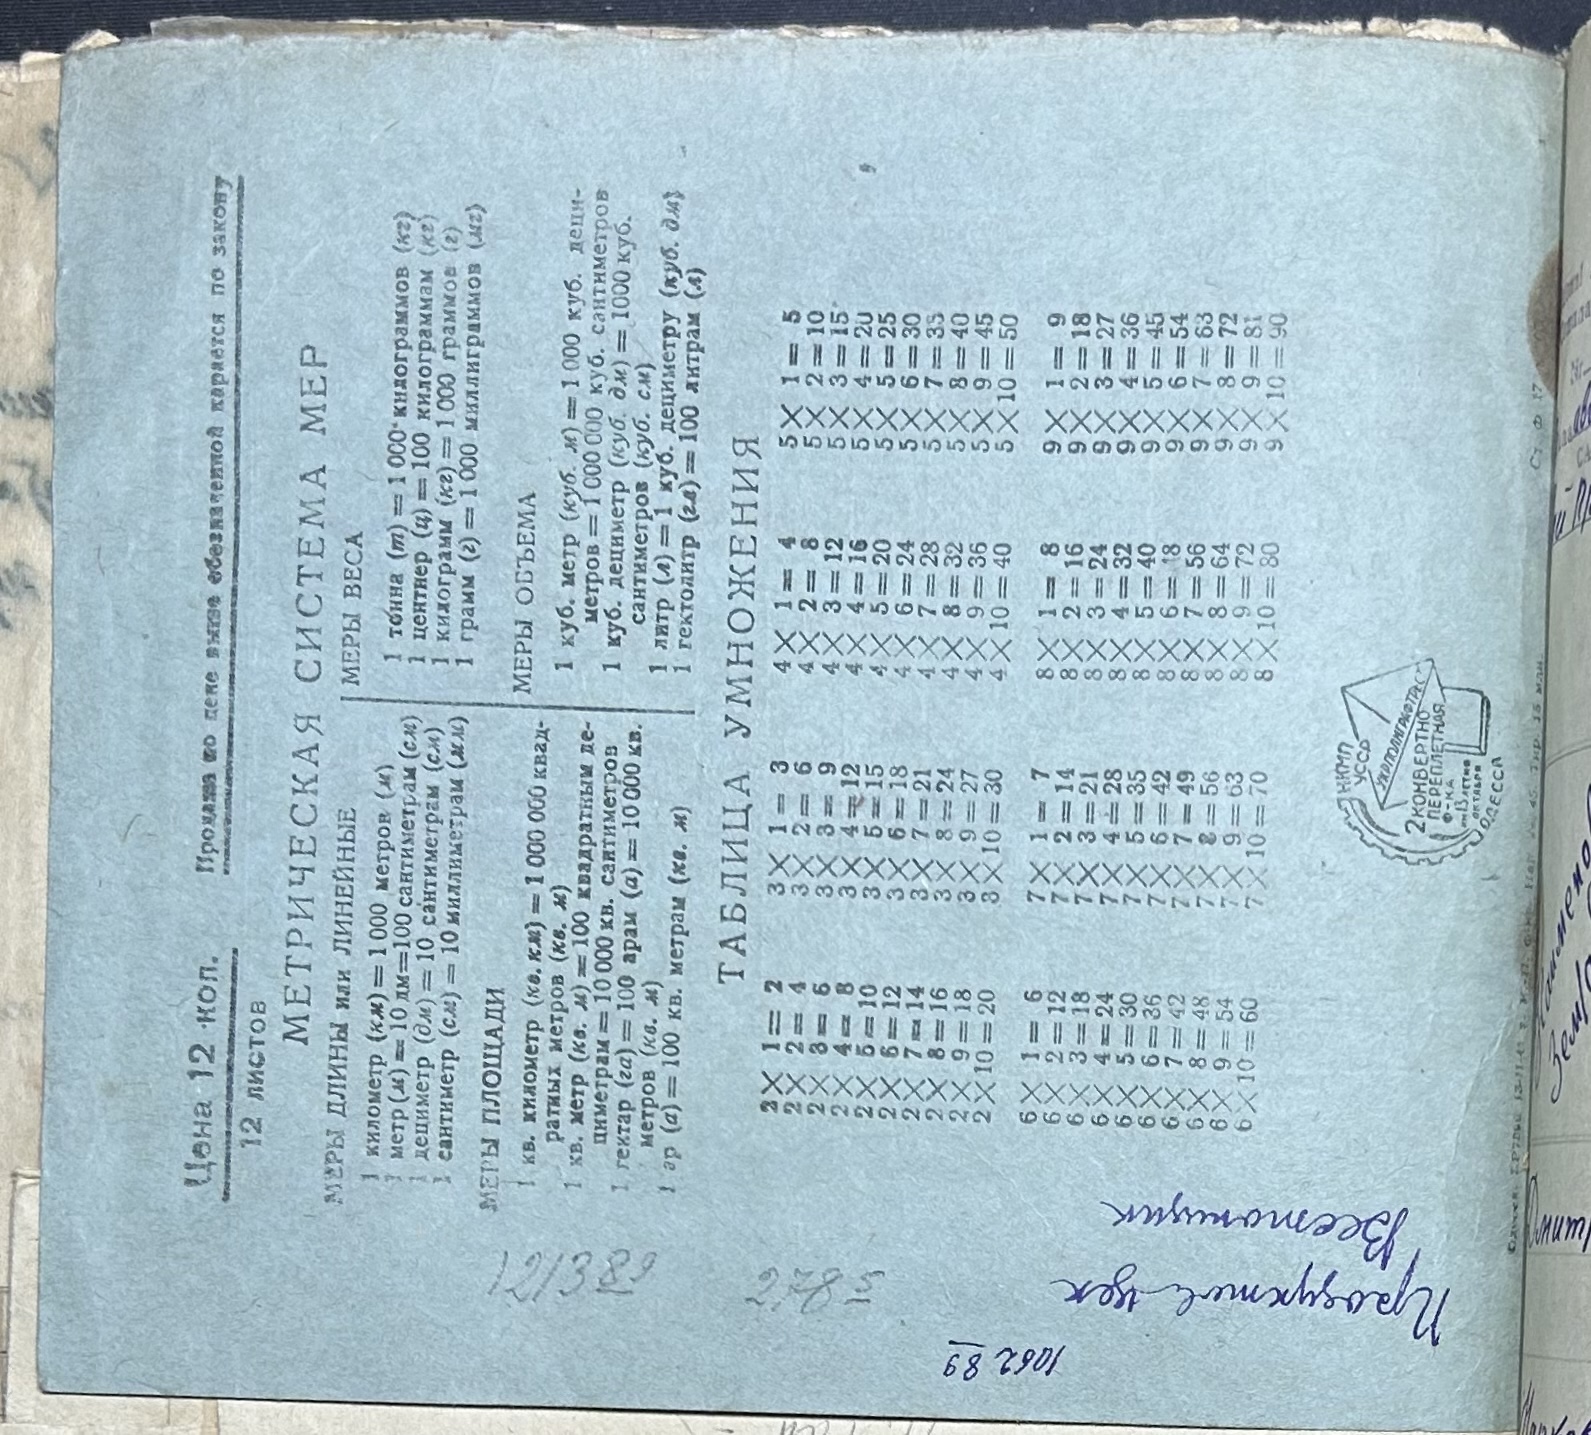 Цена 12 коп.
Продажа по цене выше обозначенной карается по закону
12 листов
МЕТРИЧЕСКАЯ СИСТЕМА МЕР
МЕРЫ ДЛИНЫ или ЛИНЕЙНЫЕ
1 километр (км) = 1000 метров (м)
1 метр (м) = 10 дм = 100 сантиметрам (см)
1 дециметр (дм) = 10 сантиметрам (см)
1 сантиметр (см) = 10 миллиметрам (мм)
МЕРЫ ПЛОЩАДИ
1 кв. километр (кв. км) = 1 000 000 квад-
ратных метров (кв. м)
1 кв. метр (кв. м) = 100 квадратным де-
циметрам = 10 000 кв. сантиметров
1 гектар (га) = 100 арам (а) = 10 000 кв.
метров (кв. м)
1 ар (а) = 100 кв. метрам (кв. м)
МЕРЫ ВЕСА
1 тонна (т) = 1 000 килограммов (кг)
1 центнер (ц) = 100 килограммам (кг)
1 килограмм (кг) = 1 000 граммов (г)
1 грамм (г) = 1 000 миллиграммов (мг)
МЕРЫ ОБЪЕМА
1 куб. метр (куб. м) = 1 000 куб. деци-
метров = 1 000 000 куб. сантиметров
1 куб. дециметр (куб. дм) = 1000 куб.
сантиметров (куб. см)
1 литр (л) = 1 куб. дециметру (куб. дм)
1 гектолитр (гл) = 100 литрам (л)
ТАБЛИЦА УМНОЖЕНИЯ
2 × 1 = 2
2 × 2 = 4
2 × 3 = 6
2 × 4 = 8
2 × 5 = 10
2 × 6 = 12
2 × 7 = 14
2 × 8 = 16
2 × 9 = 18
2 × 10 = 20
3 × 1 = 3
3 × 2 = 6
3 × 3 = 9
3 × 4 = 12
3 × 5 = 15
3 × 6 = 18
3 × 7 = 21
3 × 8 = 24
3 × 9 = 27
3 × 10 = 30
4 × 1 = 4
4 × 2 = 8
4 × 3 = 12
4 × 4 = 16
4 × 5 = 20
4 × 6 = 24
4 × 7 = 28
4 × 8 = 32
4 × 9 = 36
4 × 10 = 40
5 × 1 = 5
5 × 2 = 10
5 × 3 = 15
5 × 4 = 20
5 × 5 = 25
5 × 6 = 30
5 × 7 = 35
5 × 8 = 40
5 × 9 = 45
5 × 10 = 50
6 × 1 = 6
6 × 2 = 12
6 × 3 = 18
6 × 4 = 24
6 × 5 = 30
6 × 6 = 36
6 × 7 = 42
6 × 8 = 48
6 × 9 = 54
6 × 10 = 60
7 × 1 = 7
7 × 2 = 14
7 × 3 = 21
7 × 4 = 28
7 × 5 = 35
7 × 6 = 42
7 × 7 = 49
7 × 8 = 56
7 × 9 = 63
7 × 10 = 70
8 × 1 = 8
8 × 2 = 16
8 × 3 = 24
8 × 4 = 32
8 × 5 = 40
8 × 6 = 48
8 × 7 = 56
8 × 8 = 64
8 × 9 = 72
8 × 10 = 80
9 × 1 = 9
9 × 2 = 18
9 × 3 = 27
9 × 4 = 36
9 × 5 = 45
9 × 6 = 54
9 × 7 = 63
9 × 8 = 72
9 × 9 = 81
9 × 10 = 90
НКМП
УССР
УКРПОЛИГРАФТРЕСТ
2 КОНВЕРТНО
ПЕРЕПЛЕТНАЯ
Ф-КА
им 13 летия
октября
ОДЕССА
121389
2785
1062 89